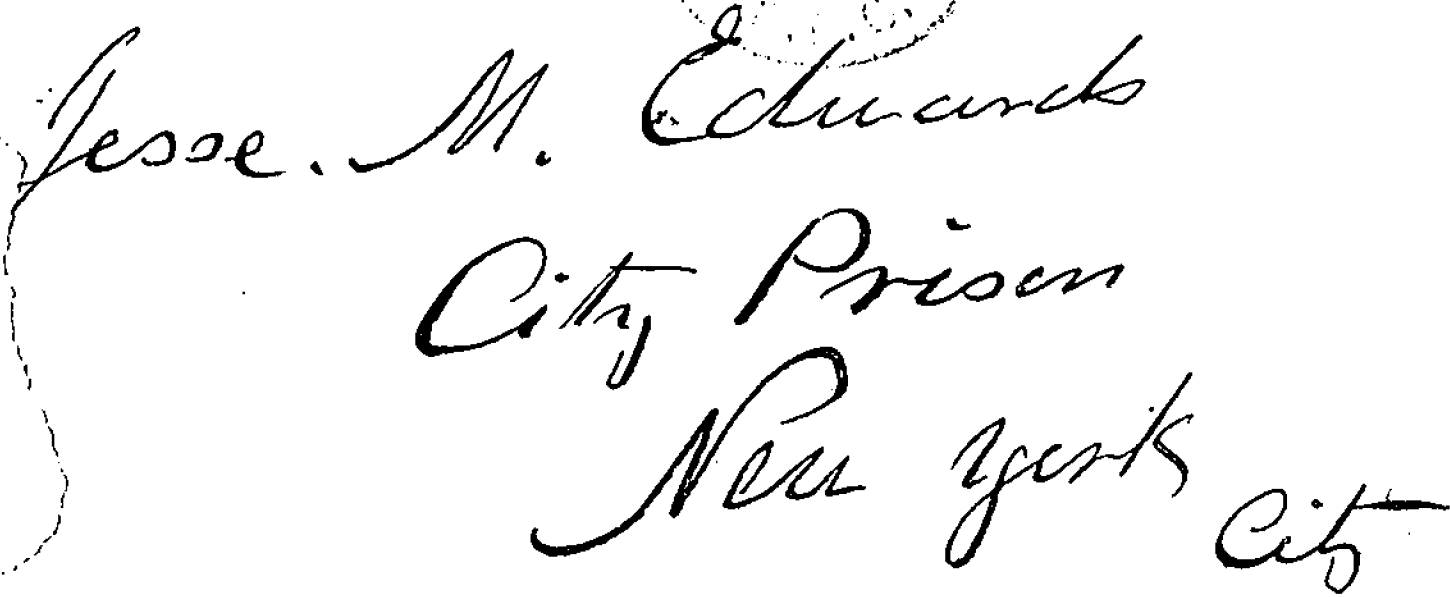 Jesse. M. Edwards
City Prison
New York
City